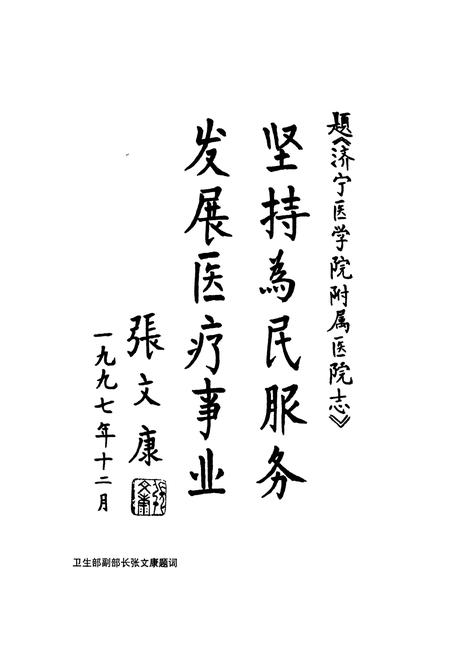 题《济宁医学院附属医院志》
坚持為民服务
发展医疗事业
張文康
一九九七年十二月
張文康
卫生部副部长张文康题词